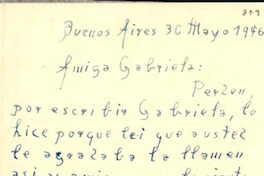 819
Buenos Aires 30 Mayo 1946
Amiga Gabriela:
Perdon,
por escribir Gabriela, lo
hice porque lei que austed
le agradaba la llamen
asi y amiga